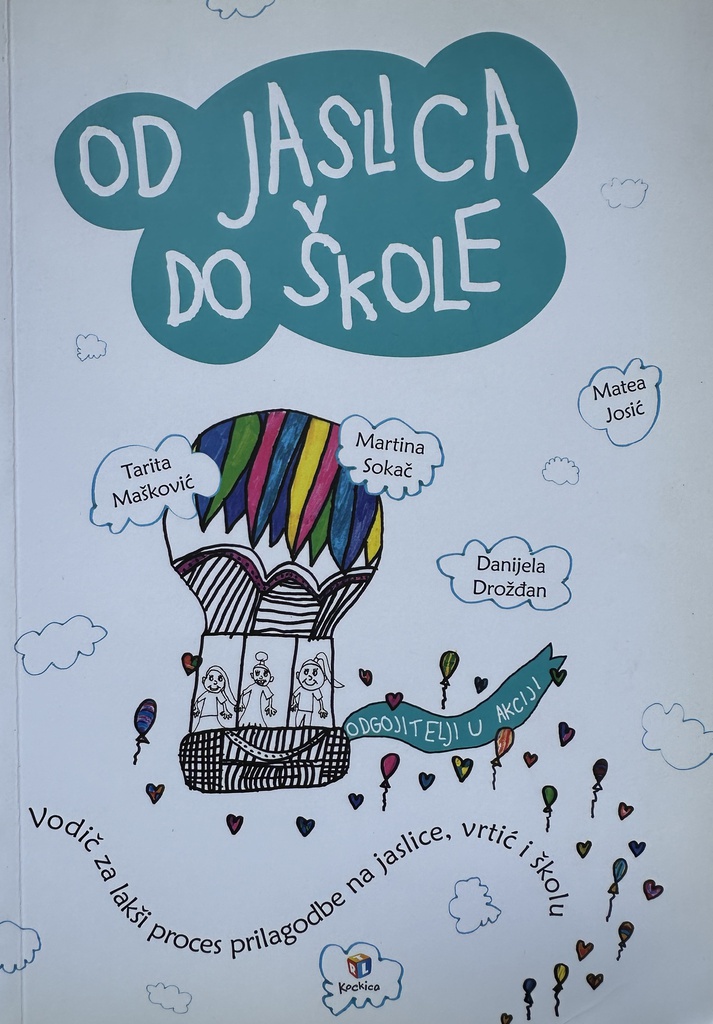 OD JASLICA
DO ŠKOLE
Matea
Josić
Martina
Sokač
Tarita
Mašković
Danijela
Drožđan
ODGOJITELJI U AKCIJI
Vodič za lakši proces prilagodbe na jaslice, vrtić i školu
Kockica